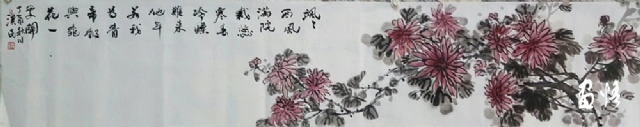 颯〻
西風
满院
栽蕊
寒香
冷蝶
難來
他年
我若
為青
帝報
與桃
花一
處開